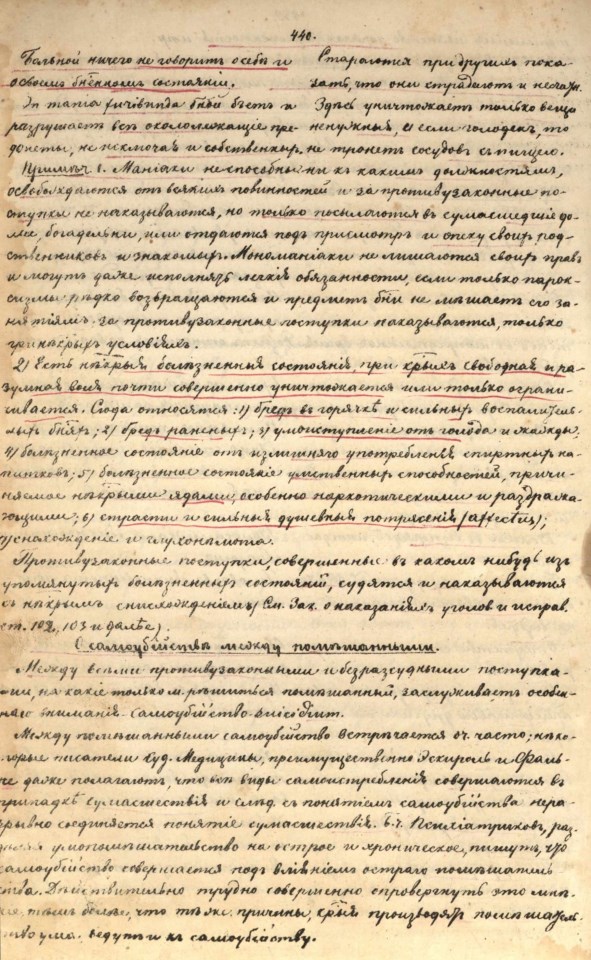 440.
Больной ничего не говоритъ о себѣ и Стараются при другихъ пока-
о своемъ бнѣнномъ состоянiи. зать, что они страдаютъ и несчаст.
In mania furibunda бной бьетъ и Здѣсь уничтожаетъ только вещи
разрушаетъ всѣ окололежащiе пре- ненужныя, а если голоденъ, то
дметы, не исключая и собственныхъ. не тронетъ сосудовъ съ пищею.
Примѣч 1. Манiаки не способны ни къ какимъ должностямъ,
освобождаются отъ всякихъ повинностей и за противузаконные по-
ступки не наказываются, но только посылаются въ сумасшедшiе до-
ма, богадельни, или отдаются подъ присмотръ и опеку своихъ род-
ственниковъ и знакомыхъ. Мономанiаки не лишаются своихъ правъ
и могутъ даже исполнять легкiя обязанности, если только парок-
сизмы рѣдко возвращаются и предметъ бни не мѣшаетъ его за-
нятiямъ. за противузаконные поступки наказываются, только
при нѣкрыхъ условiяхъ.
2) Есть нѣкрыя болѣзненныя состоянiя, при крыхъ свободная и ра-
зумная воля почти совершенно уничтожается или только ограни-
чивается. Сюда относятся: 1) бредъ въ горячкѣ и сильныхъ воспалитель-
ныхъ бняхъ; 2) бредъ раненыхъ; 3) умоиступленiе отъ голода и жажды;
4) болѣзненное состоянiе отъ излишняго употребленiя спиртныхъ на-
питковъ; 5) болѣзненное состоянiе умственныхъ способностей, причи-
няемое нѣкрыми ядами, особенно наркотическими и раздража-
ющими; 6) страсти и сильныя душевныя потрясенiя (affectus);
7) снахожденiе и глухонѣмота.
Противузаконные поступки, совершенные въ какомъ нибудь изъ
упомянутыхъ болѣзненныхъ состоянiй, судятся и наказываются
съ нѣкрымъ снисхожденiемъ (См. Зак. о наказанiяхъ уголов и исправ.
ст. 102, 103 и далѣе).
О самоубiйствѣ между помѣшанными.
Между всѣми противузаконными и безразсудными поступка-
ми, на какiе только м. рѣшиться помѣшанный, заслуживаетъ особен-
наго вниманiя самоубiйство-suicidium.
Между помѣшанными самоубiйство встрѣчается оч. часто; нѣко-
торые писатели Суд. Медицины, преимущественно Эскироль и Фаль-
ре даже полагаютъ, что всѣ виды самоистребленiя совершаются въ
припадкѣ сумасшествiя и слѣд. съ понятiемъ самоубiйства нера-
зрывно соединяется понятiе сумасшествiя. б.ч. Психiатриковъ, раз-
дѣляя умопомѣшательство на острое и хроническое, пишутъ, что
самоубiйство совершается подъ влiянiемъ остраго помѣшатель
ства. Дѣйствительно трудно совершенно опровергнуть это мнѣ-
нiе тѣмъ болѣе, что тѣже причины, крыя производятъ помѣшатель-
ство ума. ведутъ и къ самоубiйству.